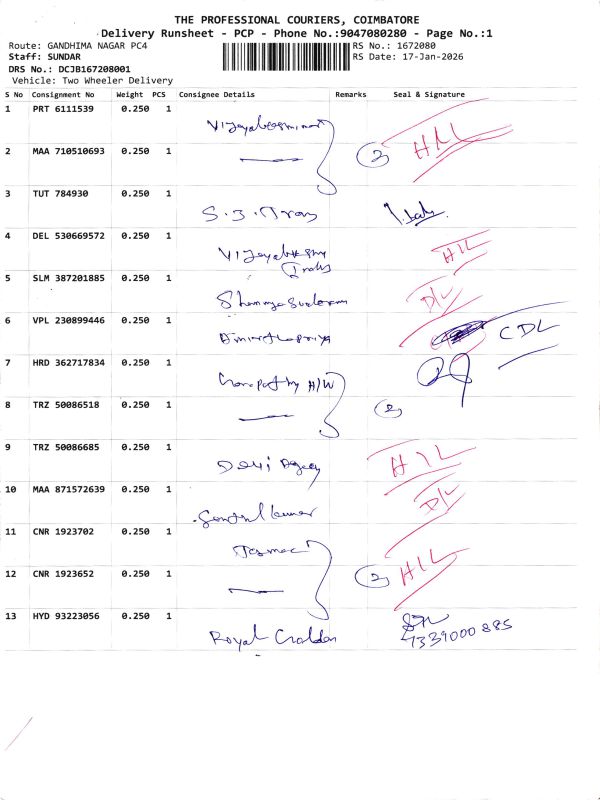 THE PROFESSIONAL COURIERS, COIMBATORE
Delivery Runsheet - PCP - Phone No.:9047080280 - Page No.:1
Route: GANDHIMA NAGAR PC4 RS No.: 1672080
Staff: SUNDAR RS Date: 17-Jan-2026
DRS No.: DCJB167208001
Vehicle: Two Wheeler Delivery
S No Consignment No Weight PCS Consignee Details Remarks Seal & Signature
1 PRT 6111539 0.250 1
2 MAA 710510693 0.250 1 2
3 TUT 784930 0.250 1
S.J.
4 DEL 530669572 0.250 1
H/L
5 SLM 387201885 0.250 1
D/L
6 VPL 230899446 0.250 1
CDL
7 HRD 362717834 0.250 1
H/W
8 TRZ 50086518 0.250 1 2
9 TRZ 50086685 0.250 1
Devi Agency H/L
10 MAA 871572639 0.250 1
D/L
11 CNR 1923702 0.250 1
Tasmac
12 CNR 1923652 0.250 1 2 H/L
13 HYD 93223056 0.250 1
Royal
7339000885